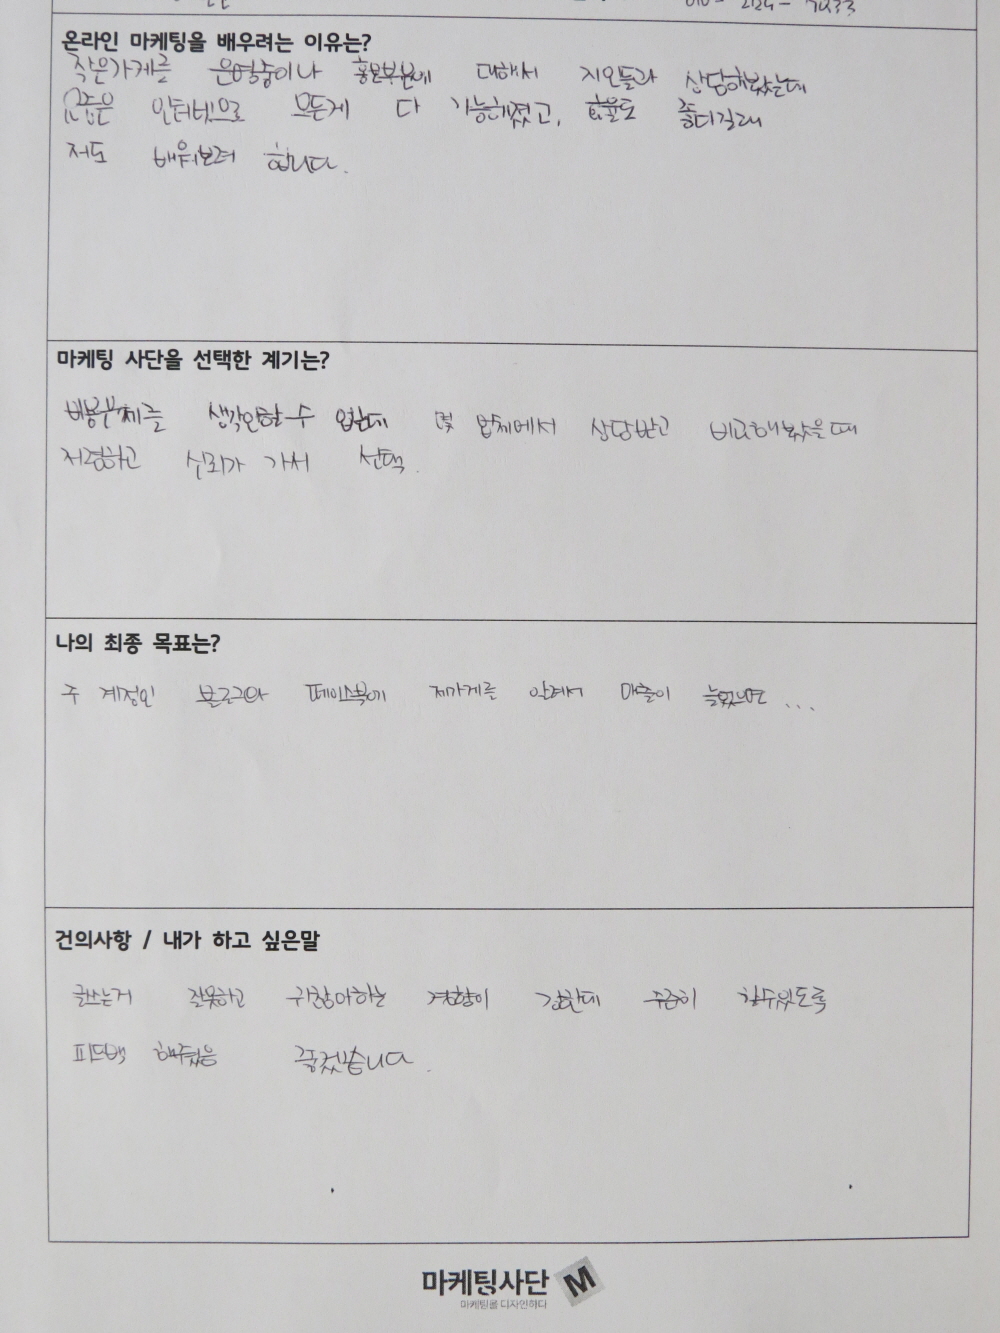 온라인 마케팅을 배우려는 이유는?
작은가게를 운영중이나 홍보부분에 대해서 지인들과 상담해봤는데
요즘은 인터넷으로 모든게 다 가능해졌고, 효율도 좋다길래
저도 배워보려 합니다.
마케팅 사단을 선택한 계기는?
비용문제를 생각안할수 없는데 몇 업체에서 상담받고 비교해봤을때
저렴하고 신뢰가 가서 선택.
나의 최종 목표는?
주 계정인 블로그와 페이스북에 제가게를 알려서 매출이 늘었으면 ...
건의사항 / 내가 하고 싶은말
글쓰는거 잘못하고 귀찮아하는 경향이 강한데 꾸준히 할수있도록
피드백 해주셨음 좋겠습니다.
마케팅사단 M
마케팅을 디자인하다